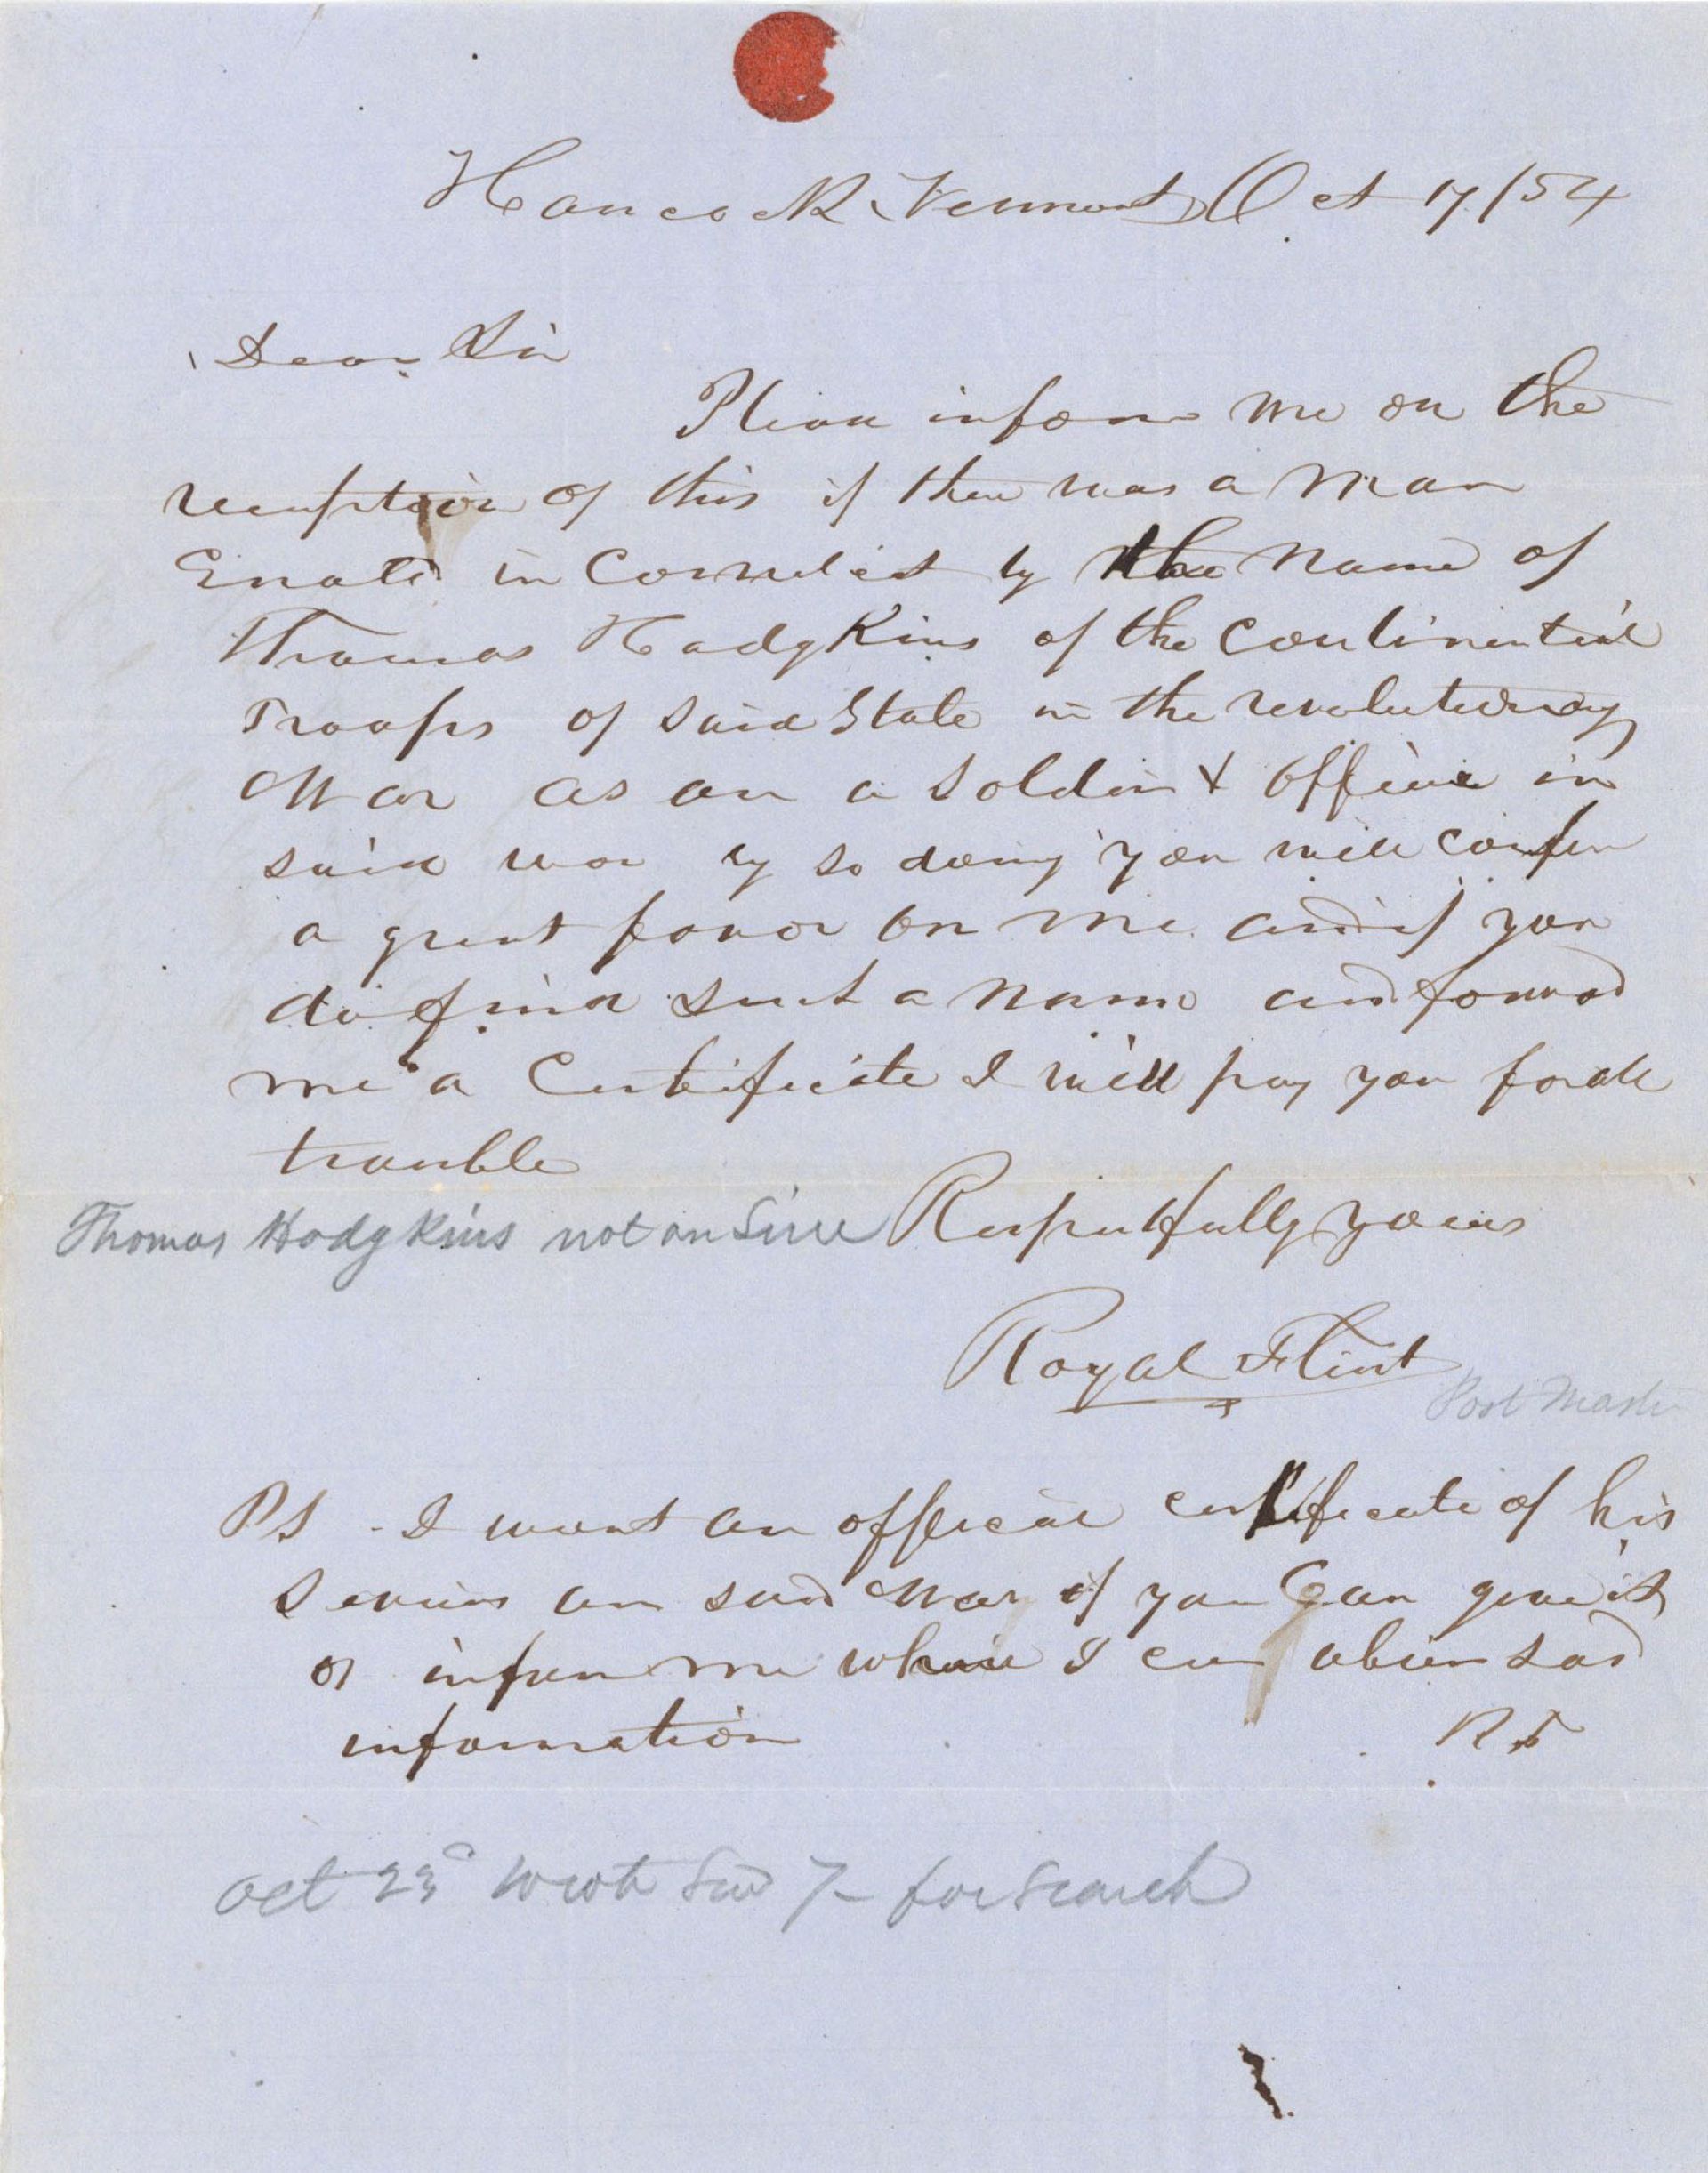 Hancock Vermont Oct 17/54
Dear Sir
Please inform me on the
reception of this if there was a man
in by the name of
Thomas Hodgkins of the Continential
Troops of said State in the revolutionary
War as an a soldier & officer in
said war by so doing you will confer
a great favor on me and if you
do find such a name and forward
me a Certificate I will pay you for all
trouble
Thomas Hodgkins not on
Respectfully yours
Royal Flint
Post Master
PS - I want an official certificate of his
services an said War if you Can give it
or inform me where I can said
information
R F
Oct 23d Wrote for search